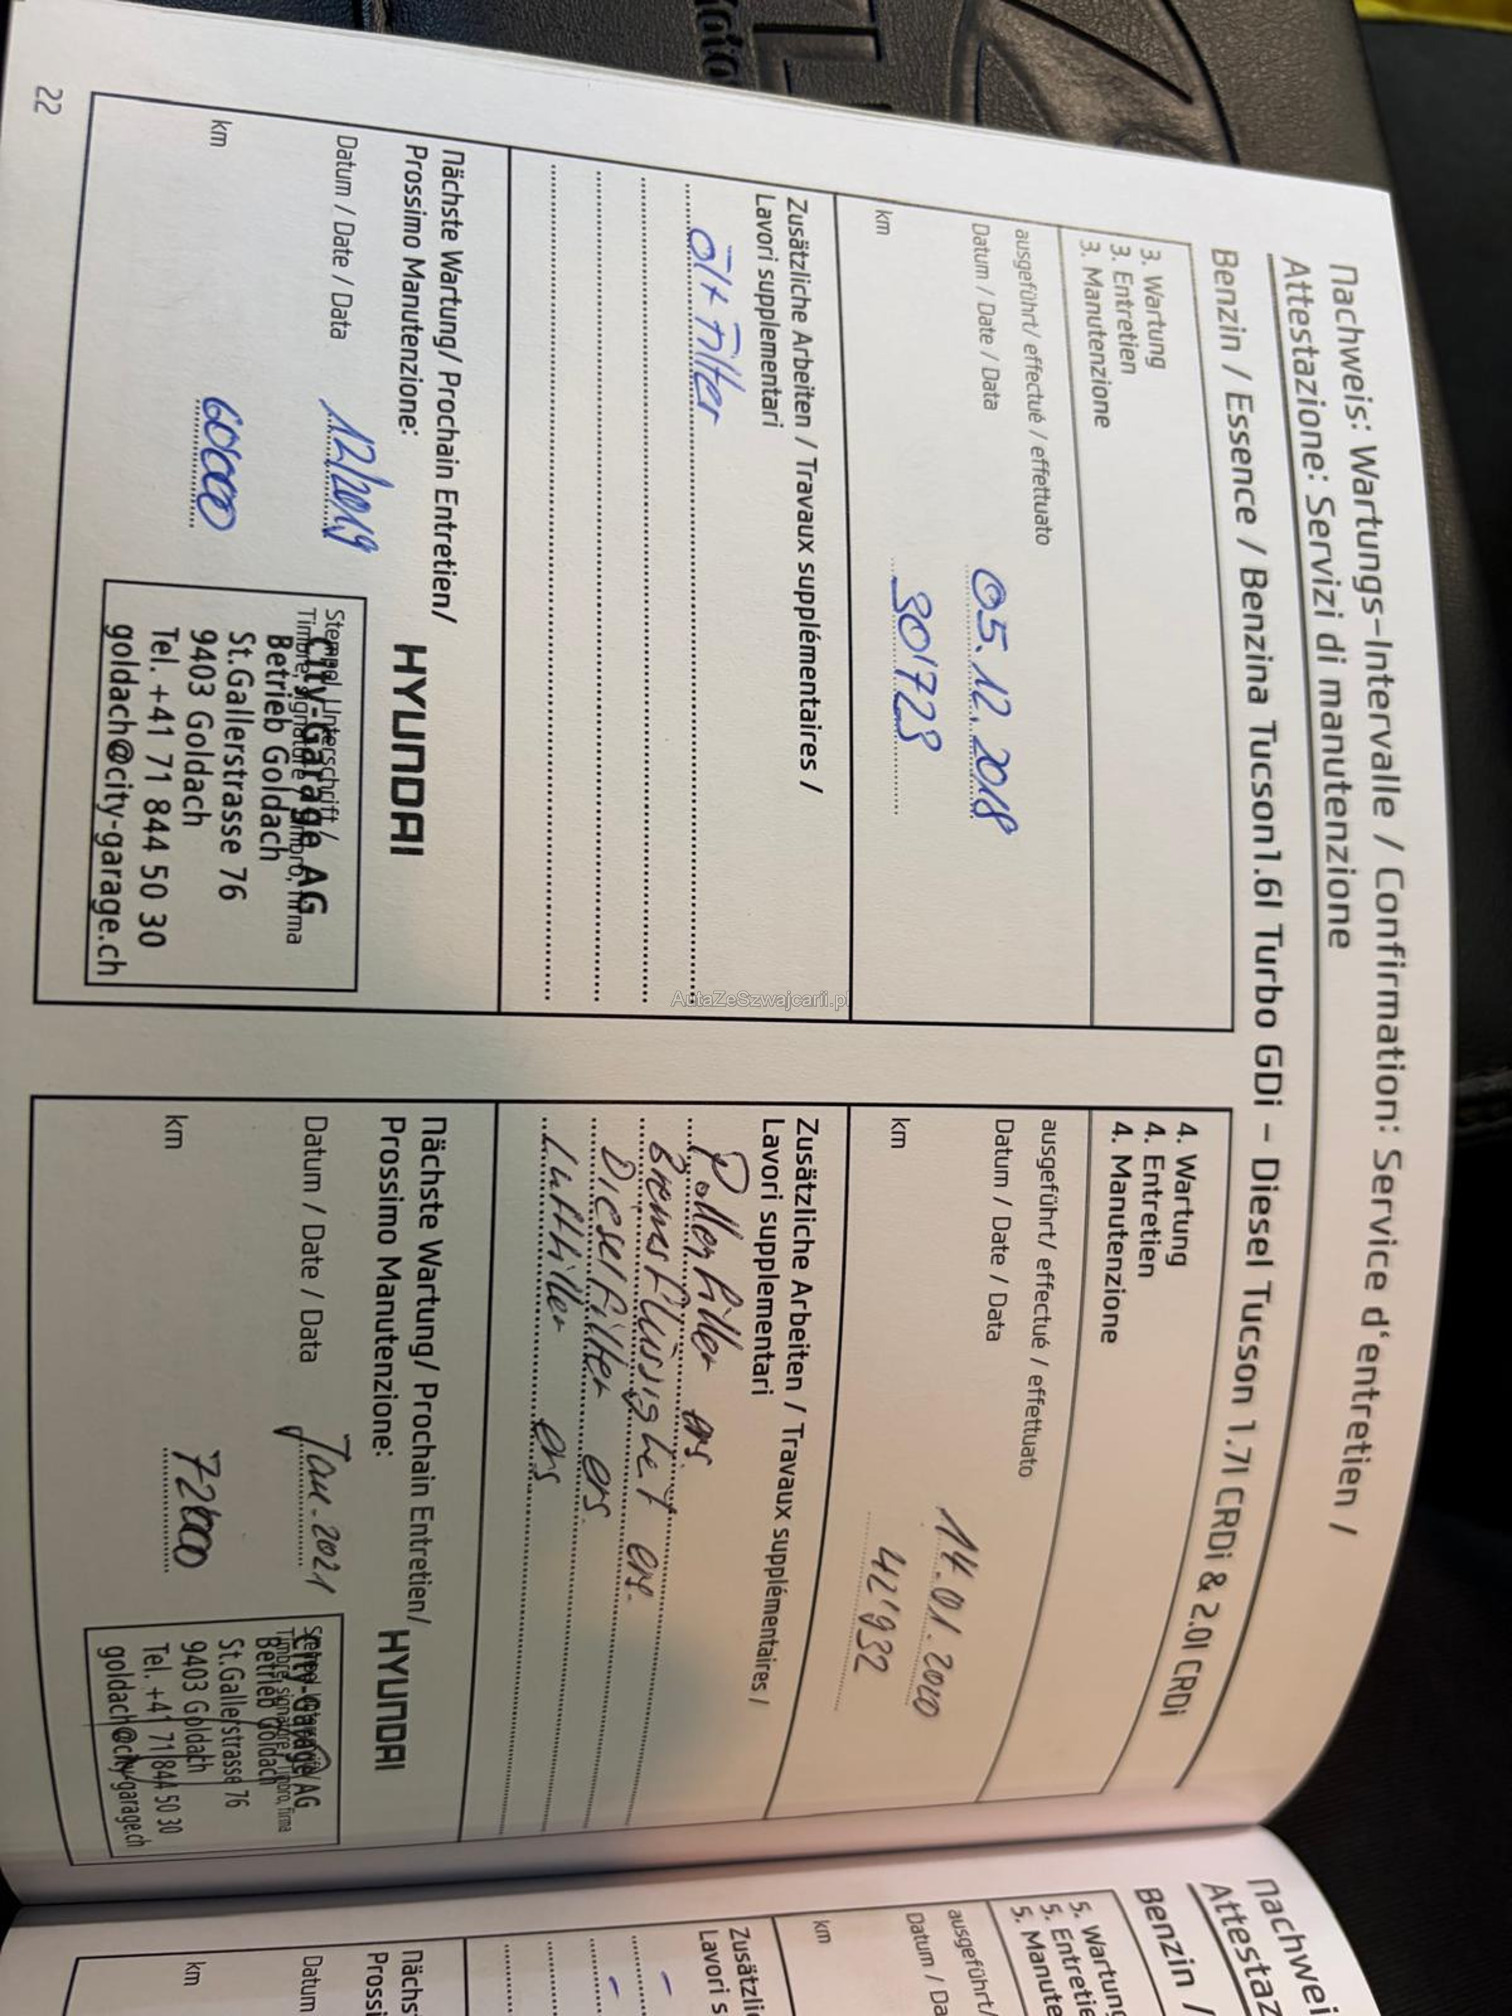 Nachweis: Wartungs-Intervalle / Confirmation: Service d'entretien /
Attestazione: Servizi di manutenzione
Benzin / Essence / Benzina Tucson1.6l Turbo GDi – Diesel Tucson 1.7l CRDi & 2.0l CRDi
3. Wartung
3. Entretien
3. Manutenzione
ausgeführt/ effectué / effettuato
Datum / Date / Data 05.12.2018
km 30'728
Zusätzliche Arbeiten / Travaux supplémentaires /
Lavori supplementari
Öl+Filter
Nächste Wartung/ Prochain Entretien/
Prossimo Manutenzione:
HYUNDAI
Datum / Date / Data 12/2019
km 60000
Stempel Unterschrift /
Timbre, signature / Timbro, firma
City-Garage AG
Betrieb Goldach
St.Gallerstrasse 76
9403 Goldach
Tel. +41 71 844 50 30
goldach@city-garage.ch
22
4. Wartung
4. Entretien
4. Manutenzione
ausgeführt/ effectué / effettuato
Datum / Date / Data 14.01.2020
km 42'932
Zusätzliche Arbeiten / Travaux supplémentaires /
Lavori supplementari
Pollenfilter ers.
Bremsflüssigkeit ers.
Dieselfilter ers.
Luftfilter ers
Nächste Wartung/ Prochain Entretien/
Prossimo Manutenzione:
HYUNDAI
Datum / Date / Data Jan. 2021
km 72000
City-Garage AG
Betrieb Goldach
St.Gallerstrasse 76
9403 Goldach
Tel. +41 71 844 50 30
goldach@city-garage.ch
Nachwei
Attestaz
Benzin /
5. Wartung
5. Entretie
5. Manute
ausgeführt/
Datum / Da
km
Zusätzli
Lavori s
Nächs
Prossi
Datum
km
AutaZeSzwajcarii.pl